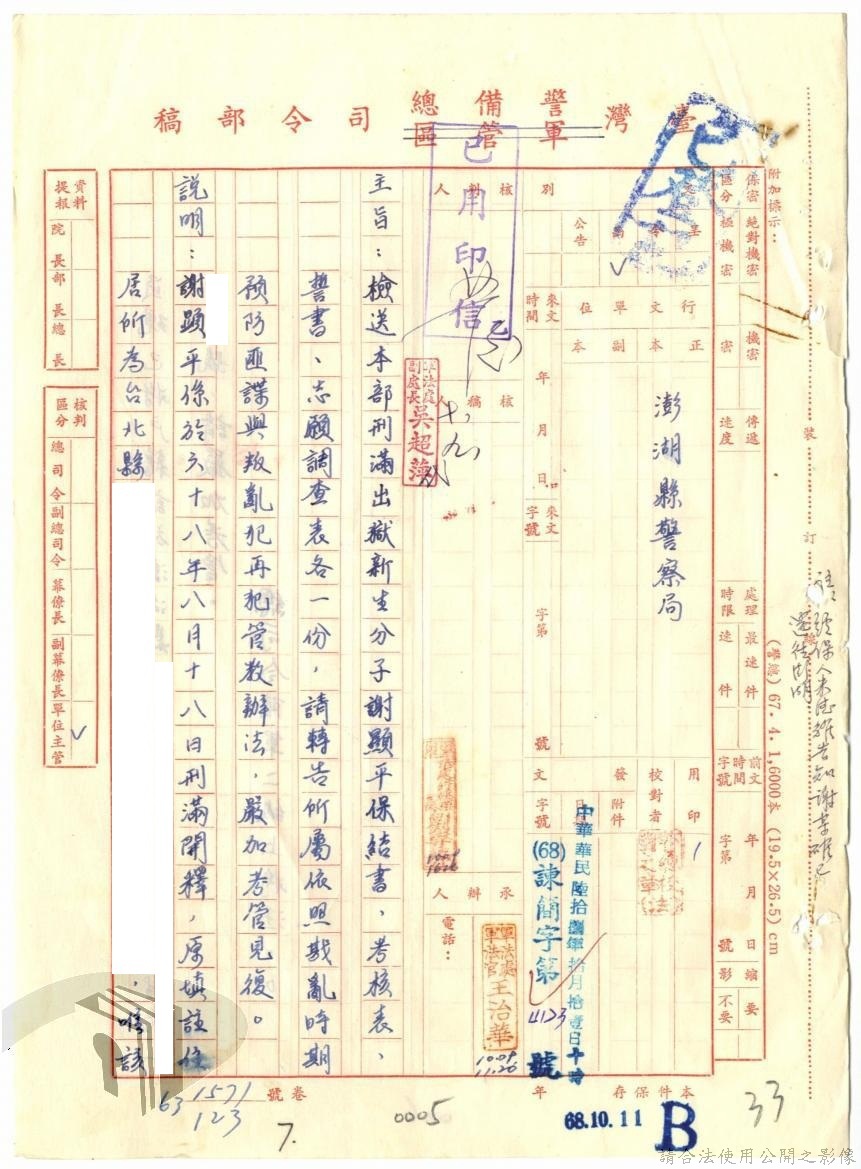 臺灣警備總司令部稿
軍管區
附加標示：
保密區分
絕對機密
極機密
機密
密
傳遞速度
處理時限
最速件
速件
前文時間字號
年月日
字第
號
縮影
要
不要
令
公告
別
行文單位
正本
副本
澎湖縣警察局
來文時間
年月日
來文字號
字第
號
用印
校對者
發文
附件
日期
字號
中華華民陸拾捌年拾月拾壹日十時
(68)諫簡字第4123號
核判人
核稿人
承辦人
電話：
已用印信
軍法處副處長吳超萍
軍法處軍法官王治華
10.09
11.20
主旨：檢送本部刑滿出獄新生分子謝顯平保結書、考核表、
誓書、志願調查表各一份，請轉告所屬依照戡亂時期
預防匪諜與叛亂犯再犯管教辦法，嚴加考管見復。
說明：謝顯平係於六十八年八月十八日刑滿開釋，原填註住
居所為台北縣，唯該
資料提報
院長
部長
總長
核判區分
總司令
副總司令
幕僚長
副幕僚長
單位主管
裝訂線
(警總) 67.4.1,6000本 (19.5×26.5)cm
本件保存
年
卷號
63 1571/123
7.
0005
68.10.11
B
33
請合法使用公開之影像